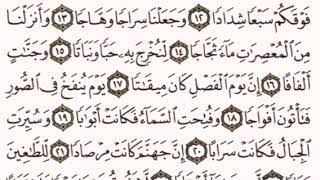 فَوْقَكُمْ سَبْعًا شِدَادًا ﴿١٢﴾ وَجَعَلْنَا سِرَاجًا وَهَّاجًا ﴿١٣﴾ وَأَنزَلْنَا
مِنَ الْمُعْصِرَاتِ مَاءً ثَجَّاجًا ﴿١٤﴾ لِنُخْرِجَ بِهِ حَبًّا وَنَبَاتًا ﴿١٥﴾ وَجَنَّاتٍ
أَلْفَافًا ﴿١٦﴾ إِنَّ يَوْمَ الْفَصْلِ كَانَ مِيقَاتًا ﴿١٧﴾ يَوْمَ يُنفَخُ فِي الصُّورِ
فَتَأْتُونَ أَفْوَاجًا ﴿١٨﴾ وَفُتِحَتِ السَّمَاءُ فَكَانَتْ أَبْوَابًا ﴿١٩﴾ وَسُيِّرَتِ
الْجِبَالُ فَكَانَتْ سَرَابًا ﴿٢٠﴾ إِنَّ جَهَنَّمَ كَانَتْ مِرْصَادًا ﴿٢١﴾ لِلطَّاغِينَ